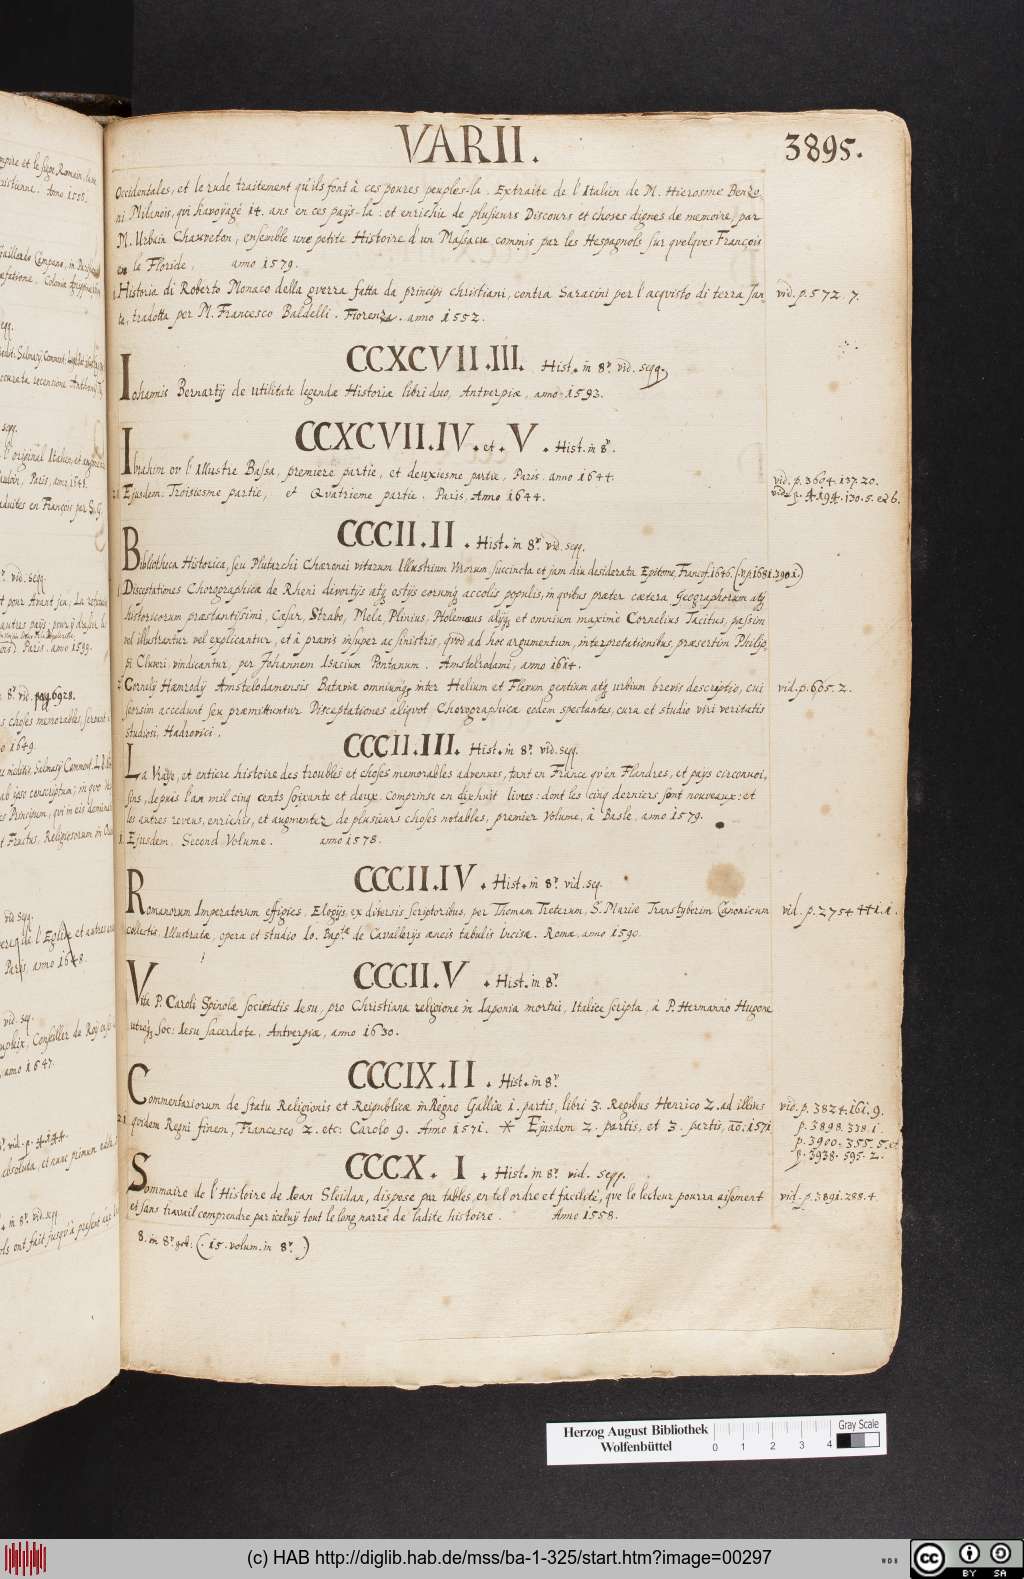 VARII. 3895.
Occidentales, et le rude traitement qu'ils font à ces poures peuples-la. Extraite de l'Italien de M. Hierosme Benzo-
ni Milanois, qui ha voyagé 14. ans en ces païs-la: et enrichie de plusieurs Discours et choses dignes de memoire, par
M. Urbain Chauveton, ensemble une petite Histoire d'un Massacre commis par les Hespagnols sur quelques François
en la Floride, anno 1579.
Historia di Roberto Monaco della guerra fatta da principi christiani, contra Saracini per l'acquisto di terra San- vid. p. 572. 7.
ta, tradotta per M. Francesco Baldelli. Fiorenza. anno 1552.
CCXCVII.III. Hist. in 8º. vid. seqq.
Iohannis Bernartij de utilitate legendæ Historiæ libri duo, Antverpiæ, anno 1593.
CCXCVII.IV. et. V. Hist. in 8º.
Ibrahim ou l'Illustre Bassa, premiere partie, et deuxiesme partie, Paris, anno 1644. vid. p. 3604. 137. 20.
Ejusdem. Troisiesme partie, et Quatrieme partie. Paris, Anno 1644. vide p. 4194. 130. 5. et 6.
CCCII.II. Hist. in 8º. vid. seqq.
Bibliotheca Historica, seu Plutarchi Chæronei vitarum Illustrium Virorum succincta et jam diu desiderata Epitome, Francof. 1646. (v. p. 1681. 390. 1.)
Disceptationes Chorographicæ de Rheni divortijs atq ostijs eorumq accolis populis, in quibus præter cætera Geographorum atq
historicorum præstantissimi, Cæsar, Strabo, Mela, Plinius, Ptolemæus alijq, et omnium maximè Cornelius Tacitus, passim
vel illustrantur vel explicantur, et à pravis insuper ac sinistris, quod ad hoc argumentum, interpretationibus, præsertim Philip-
pi Cluveri, vindicantur, per Johannem Isacium Pontanum. Amstelrodami, anno 1614.
Cornelij Hamrodij Amstelodamensis Bataviæ omniumq inter Helium et Flevum gentium atq urbium brevis descriptio, cui vid. p. 605. 2.
seorsim accedunt seu præmittuntur Disceptationes aliquot Chorographicæ eodem spectantes, cura et studio viri veritatis
studiosi, Hadrovici.
CCCII.III. Hist. in 8º. vid. seqq.
La Vraye, et entiere histoire des troubles et choses memorables advenues, tant en France qu'en Flandres, et païs circonvoi-
sins, depuis l'an mil cinq cents soixante et deux. Comprinse en dixhuit livres: dont les cinq derniers sont nouveaux: et
les autres reveus, enrichis, et augmentez de plusieurs choses notables, premier Volume, à Basle, anno 1579.
Ejusdem, Second Volume. anno 1578.
CCCII.IV. Hist. in 8º. vid. seq.
Romanorum Imperatorum effigies, Elogijs, ex diversis scriptoribus, per Thomam Treterum, S. Mariæ Transtyberim Canonicum vid. p. 2754. 441. 1.
collectis, Illustratæ, opera et studio Io. Bapt. de Cavallerijs æneis tabulis Incisæ. Romæ, anno 1590.
CCCII.V. Hist. in 8º.
Vita P. Caroli Spinolæ Societatis Iesu, pro Christiana religione in Iaponia mortui, Italicè scripta, à P. Hermanno Hugone
utraq Soc: Iesu sacerdote, Antverpiæ, anno 1630.
CCCIX.II. Hist. in 8º.
Commentariorum de statu Religionis et Reipublicæ in Regno Galliæ 1. partis, libri 3. Regibus Henrico 2. ad illius vid. p. 3824. 161. 9.
quidem Regni finem, Francesco 2. etc: Carolo 9. Anno 1571. * Ejusdem 2. partis, et 3. partis, aō. 1571 p. 3898. 338. 1.
p. 3900. 355. 5. et
p. 3938. 595. 2.
CCCX. I. Hist. in 8º. vid. seqq.
Sommaire de l'Histoire de Iean Sleidan, disposé par tables, en tel ordre et facilité, que le lecteur pourra aisement vid. p. 3891. 288. 4.
et sans travail comprendre par iceluy tout le long narré de ladite histoire. Anno 1558.
8. in 8º. (15. volum. in 8º.)
Herzog August Bibliothek
Wolfenbüttel
0 1 2 3 4
Gray Scale
(c) HAB http://diglib.hab.de/mss/ba-1-325/start.htm?image=00297
WDB
cc BY SA